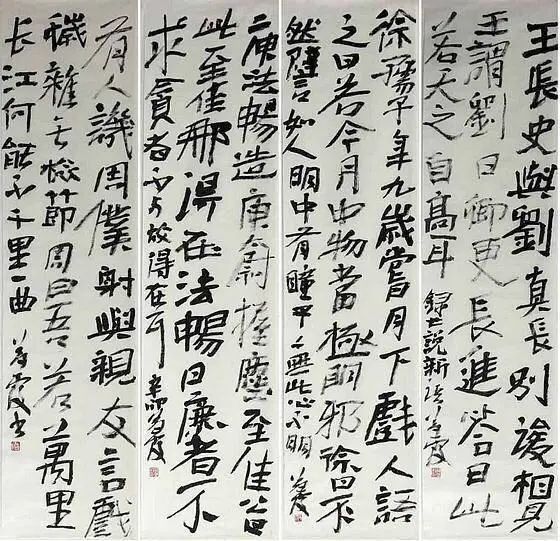 王長史與劉真長別後相見
王謂劉曰卿更長進答曰此
若天之自高耳 錄世說新語
徐孺子年九歲嘗月下戲人語
之曰若令月中物當極明邪徐曰不
然譬如人眼中有瞳子無此必不明
法暢造庾尉握麈至佳
此至佳那得在法暢曰廉者不
求貪者不與故得在耳 辛卯
有人譏周僕射與親友言戲
穢雜無檢節周曰吾若萬里
長江何能不千里一曲 書